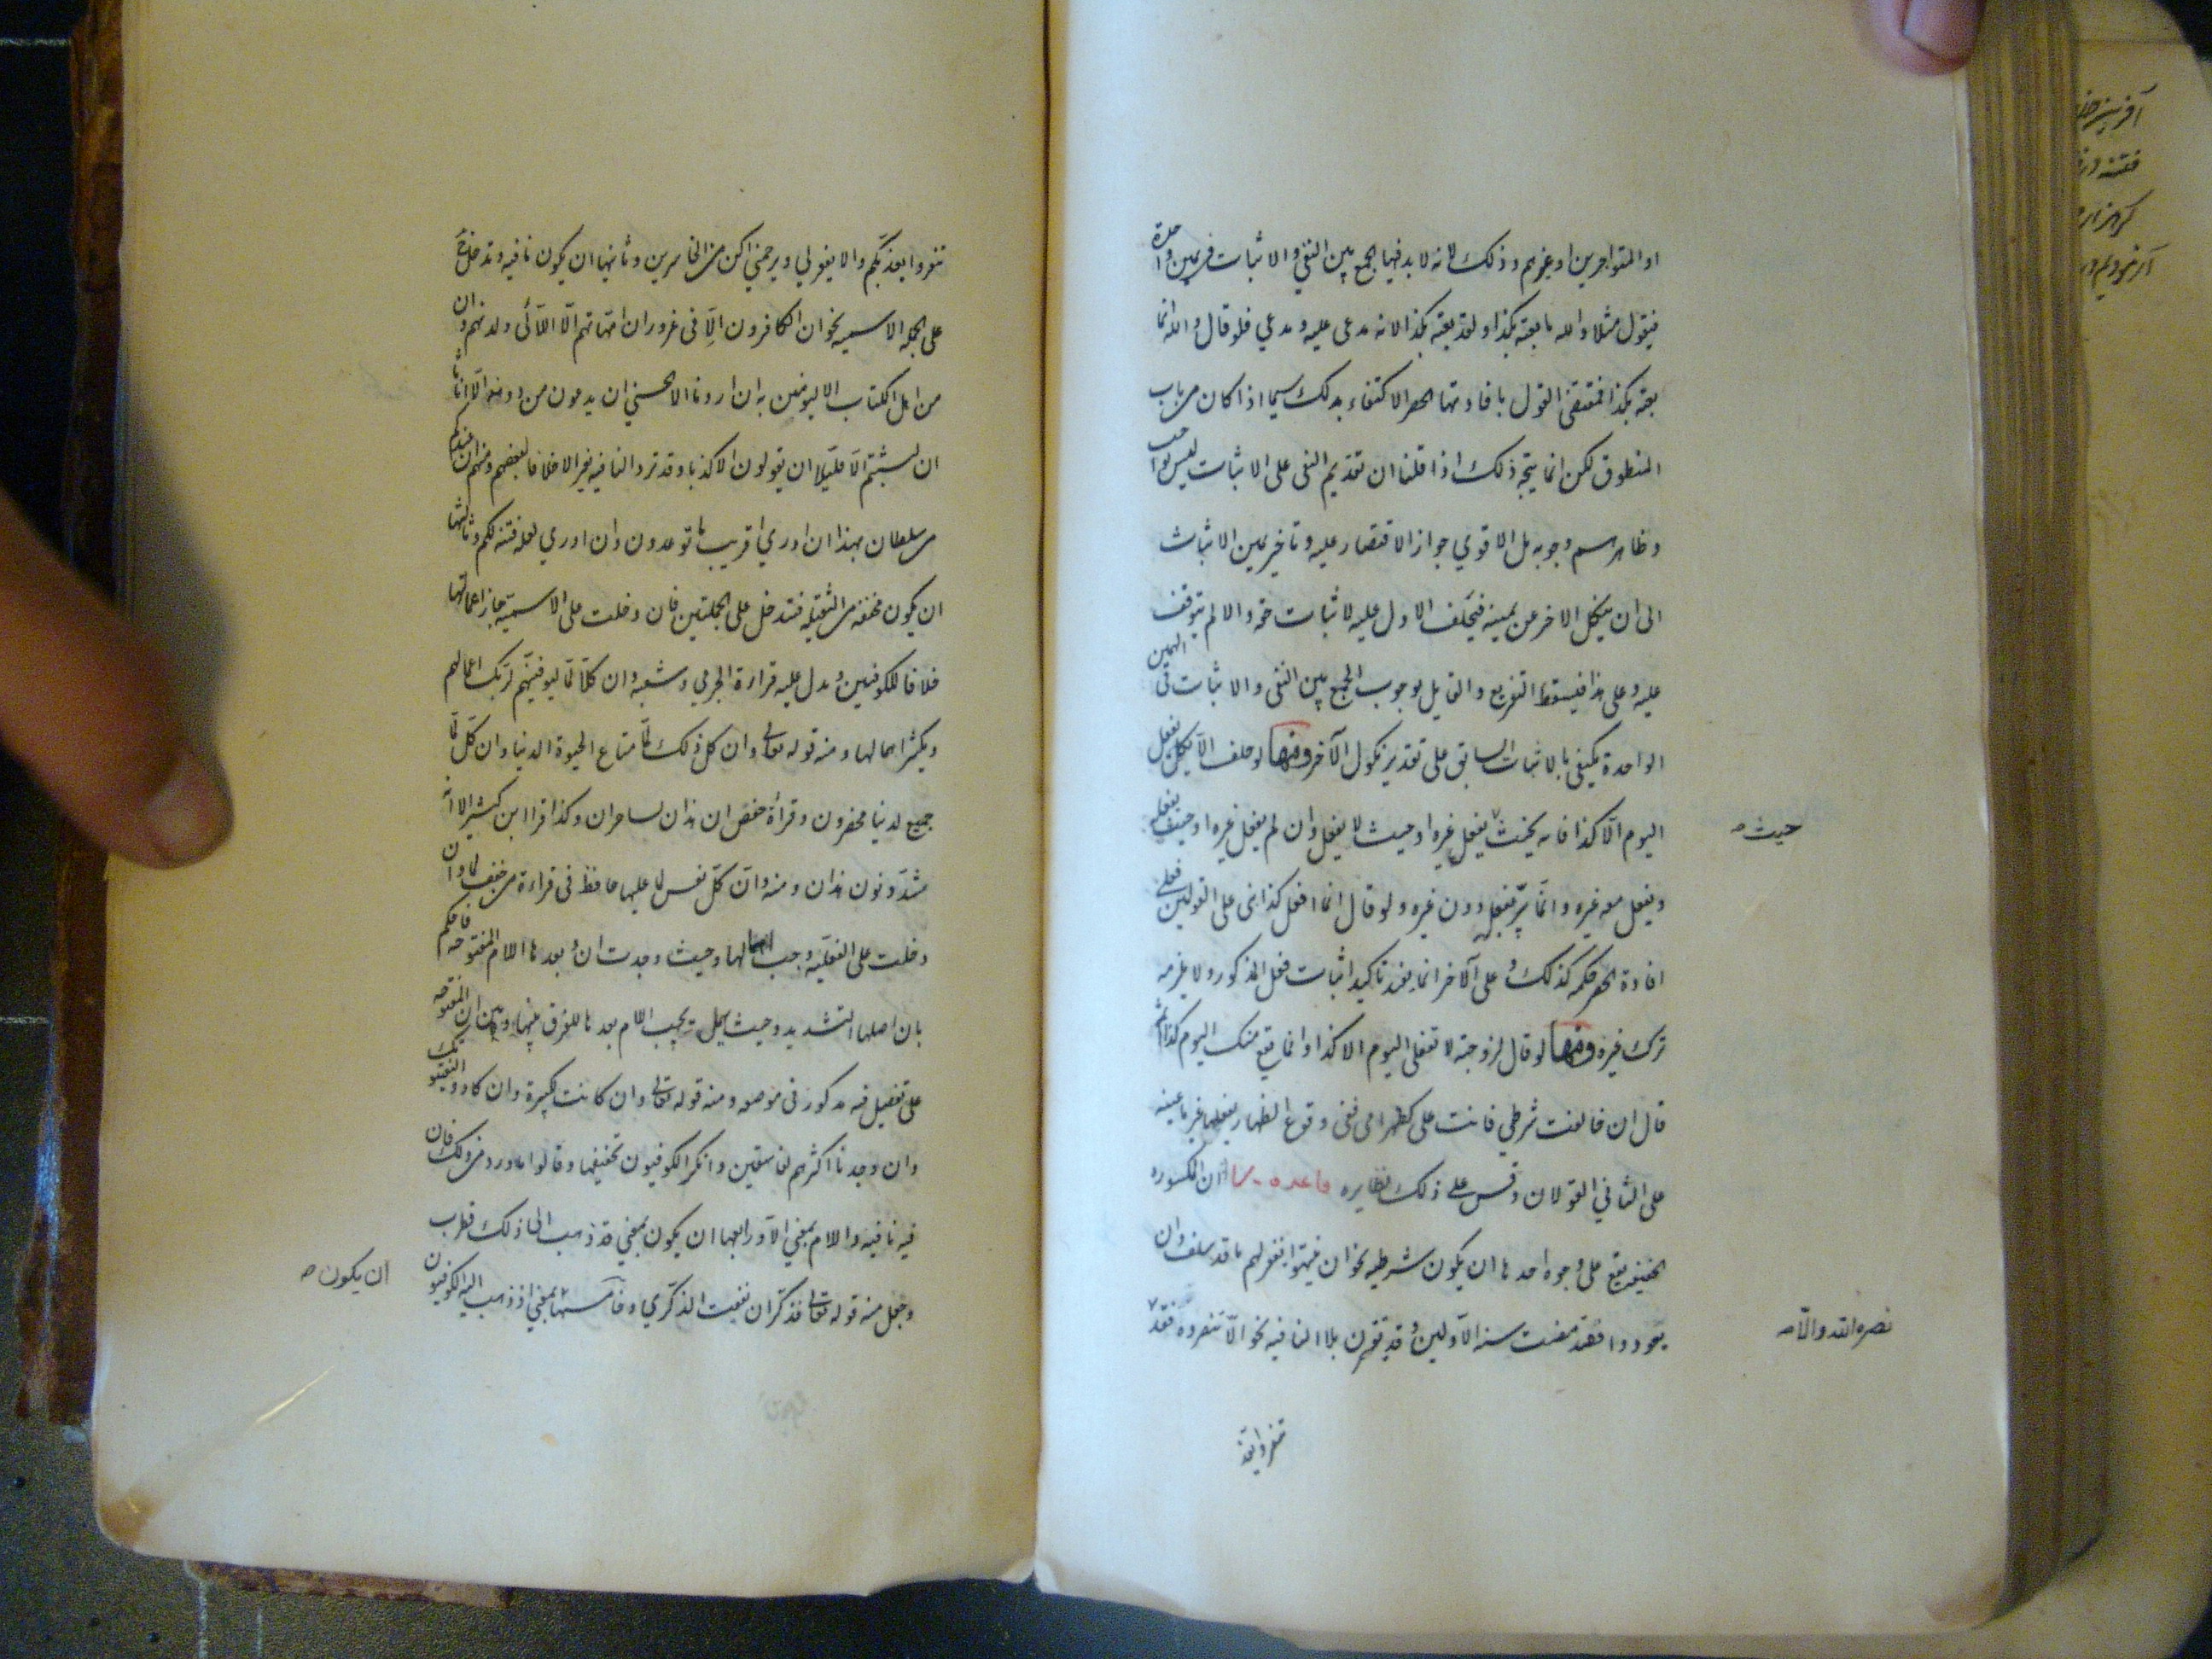 او المتواجرين او غيرهم وذلك لانه لا بد فيها الجمع بين النفي والاثبات في يمين واحدة
فيقول مثلا والله ما بعته بكذا ولقد بعته بكذا لانه مدعى عليه ومدعي فلو قال والله انما
بعته بكذا فمقتضى القول بافادتها الحصر الاكتفاء بذلك سيما اذا كان من باب
المنطوق لكن انما يتجه ذلك اذا قلنا ان تقديم النفى على الاثبات ليس بواجب
وظاهرهم وجوبه بل الاقوي جواز الاقتصار عليه وتاخير يمين الاثبات
الى ان ينكل الاخر عن يمينه فيحلف الاول عليه لاثبات حقه والا لم يتوقف
عليه وعلى هذا فيسقط التفريع والقايل بوجوب الجمع بين النفى والاثبات في اليمين
الواحدة يكتفي بالاثبات السابق على تقدير نكول الآخر ومنها لو حلف الا يفعل
اليوم الّا كذا فانه يحنث بفعل غيره او حيث لا يفعل وان لم يفعل غيره او حيث يفعله
حيث صه
ويفعل معه غيره وانما يبرّ بفعله دون غيره ولو قال انما افعل كذا بنى على القولين فعلى
افادة الحصر حكمه كذلك وعلى الآخر انما يفيد تاكيد اثبات فعل المذكور ولا يلزمه
ترك غيره ومنها لو قال لزوجته لا تفعلى اليوم الا كذا او انما يقع منك اليوم كذا ثم
قال ان خالفت شرطي فانت على كظهر امى ففى وقوع الظهار بفعلها غير ما عينه
على الثاني القولان وقس على ذلك نظايره قاعده ان المكسوره
الخفيفه يقع على وجوه احدها ان يكون شرطيه نحو ان ينتهوا يغفر لهم ما قد سلف وان
يعودوا فقد مضت سنة الاولين وقد يقترن بلا النافيه نحو الّا تنصروه فقد
نصره الله والّا صه
تنفروا يعذ
تنفروا يعذبكم والا يغفر لي ويرحمني اكن من الخاسرين وثانيها ان يكون نافيه وتدخل
على الجملة الاسميه نحو ان الكافرون الّا فى غرور ان امّهاتهم الّا اللآئى ولدنهم وان
من اهل الكتاب الا ليؤمنن به ان اردنا الا الحسني ان يدعون من دونه الّا اناثا
ان لبثتم الّا قليلا ان يقولون الا كذبا وقد ترد النافيه بغير الا خلافا لبعضهم ومنه ان عندكم
من سلطان بهذا ان ادري اقريب ما توعدون وان ادري لعله فتنه لكم وثالثها
ان يكون مخففه من الثقيله فتدخل على الجملتين فان دخلت على الاسميّة جاز اعمالها
خلافا للكوفيين ويدل عليه قراءة الحرمي وشعبه وان كلّا لمّا ليوفينّهم ربّك اعمالهم
ويكثر اهمالها ومنه قوله تعالى وان كل ذلك لمّا متاع الحيوة الدنيا وان كلّ لمّا
جميع لدينا محضرون وقراة حفص ان هذان لساحران وكذا قرا ابن كثير الا انّه
شدّد نون هذان ومنه وان كلّ نفس لما عليها حافظ فى قراءة من خفف لما وان
دخلت على الفعليّه وجب اهمالها وحيث وجدت ان وبعدها اللام المفتوحه فاحكم
بان اصلها التشديد وحيث يهمل يجب اللام بعدها للفرق بينها وبين ان
على تفصيل فيه مذكور فى موضعه ومنه قوله تعالى وان كانت لكبيرة وان كادوا ليفتنونك
وان وجدنا اكثرهم لفاسقين وانكر الكوفيون تخفيفها وقالوا ما ورد من ذلك فان
فيه نافيه واللام بمعني الّا ورابعها ان يكون بمعني قد ذهب الى ذلك قطرب
وجعل منه قوله تعالى فذكّر ان نفعت الذكّري وخامسها بمعني اذ ذهب اليه الكوفيون
ان يكون صه